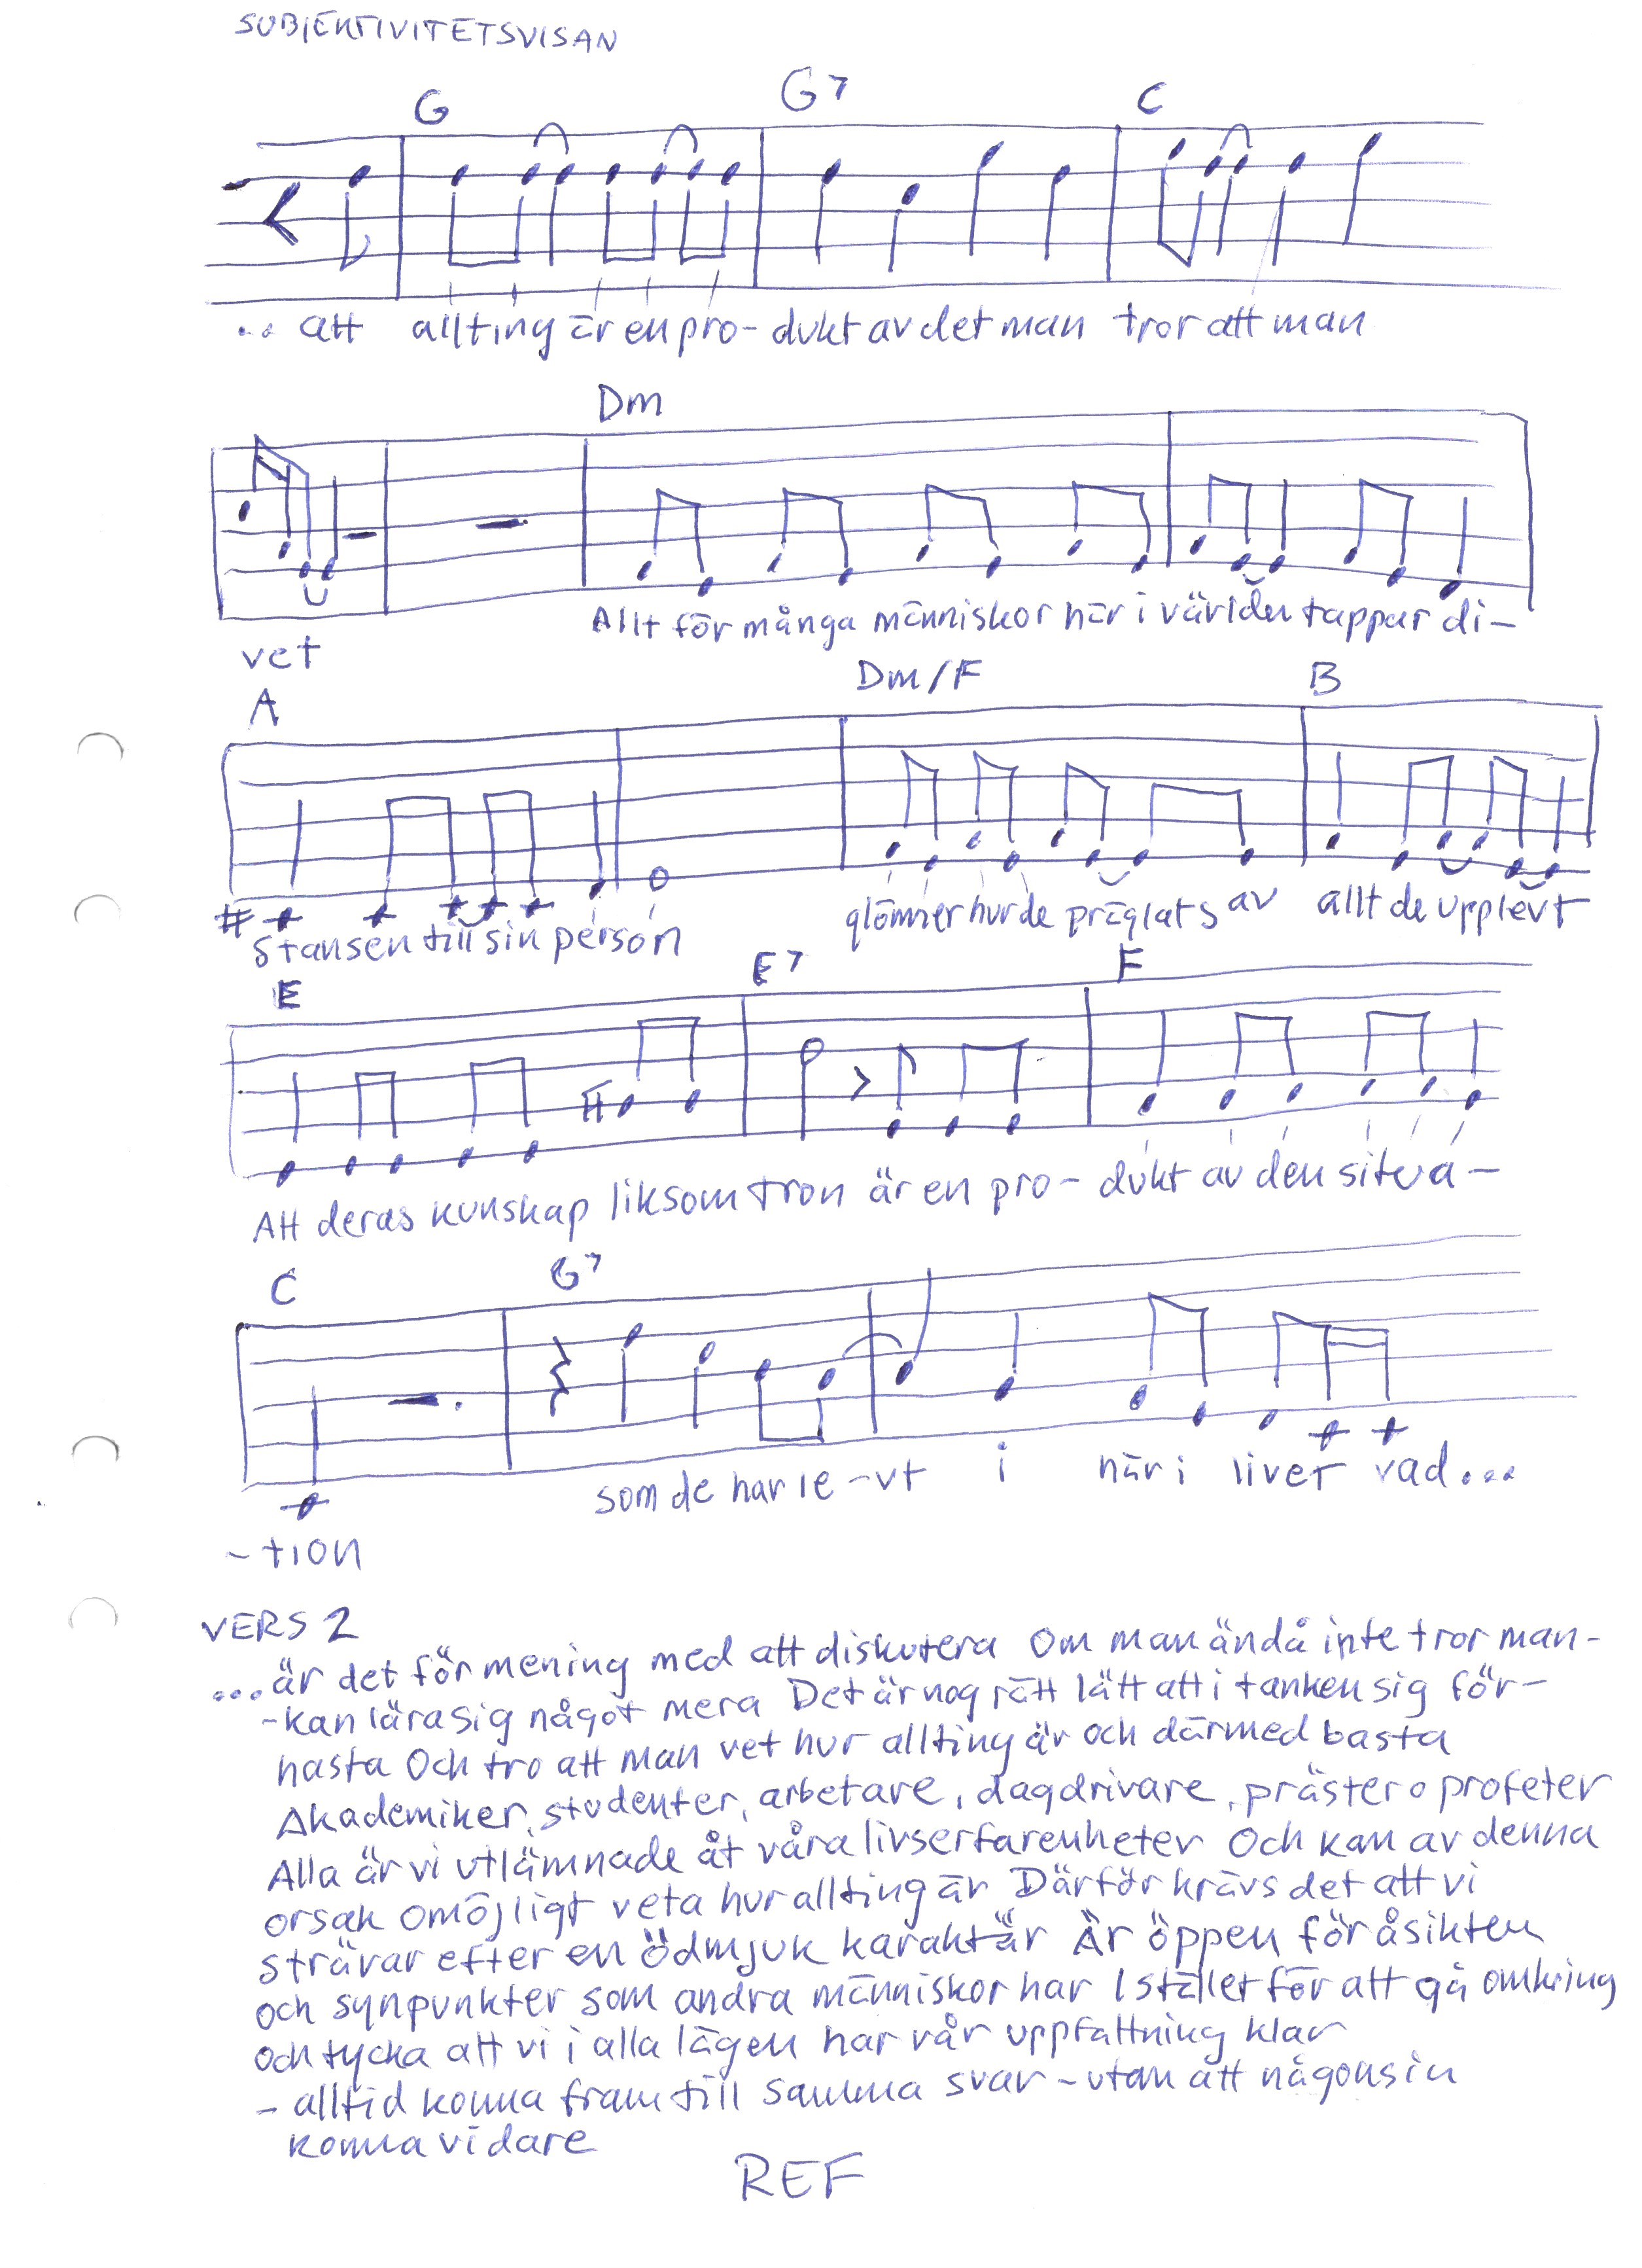 SUBJEKTIVITETSVISAN
G G7 C
... att allting är en pro- dukt av det man tror att man
Dm
vet Allt för många människor här i världen tappar di-
A Dm/F B
stansen till sin person glömmer hur de präglats av allt de upplevt
E E7 F
Att deras kunskap liksom tron är en pro- dukt av den situa-
C G7
-tion som de har le-vt i här i livet vad...
VERS 2
... är det för mening med att diskutera Om man ändå inte tror man-
-kan lära sig något mera Det är nog rätt lätt att i tanken sig för-
hasta Och tro att man vet hur allting är och därmed basta
Akademiker, studenter, arbetare, dagdrivare, präster o profeter
Alla är vi utlämnade åt våra livserfarenheter Och kan av denna
orsak omöjligt veta hur allting är Därför krävs det att vi
strävar efter en ödmjuk karaktär Är öppen för åsikten
och synpunkter som andra människor har Istället för att gå omkring
och tycka att vi i alla lägen har vår uppfattning klar
- alltid komma fram till samma svar - utan att någonsin
komma vidare
REF